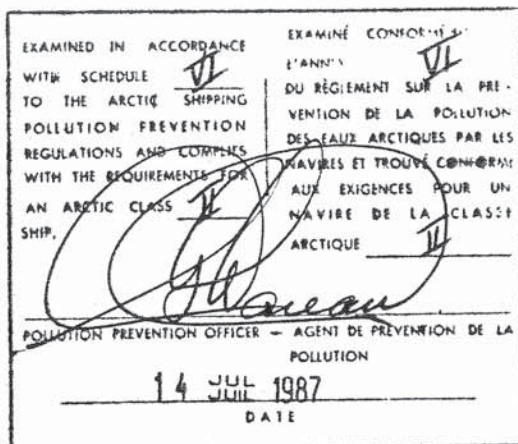 EXAMINED IN ACCORDANCE
WITH SCHEDULE VI
TO THE ARCTIC SHIPPING
POLLUTION PREVENTION
REGULATIONS AND COMPLIES
WITH THE REQUIREMENTS FOR
AN ARCTIC CLASS II
SHIP.
EXAMINÉ CONFORMÉ
L'ANN VI
DU RÈGLEMENT SUR LA PRÉ-
VENTION DE LA POLLUTION
DES EAUX ARCTIQUES PAR LES
NAVIRES ET TROUVÉ CONFORME
AUX EXIGENCES POUR UN
NAVIRE DE LA CLASSE
ARCTIQUE II
POLLUTION PREVENTION OFFICER — AGENT DE PRÉVENTION DE LA
POLLUTION
14 JUL JUIL 1987
DATE